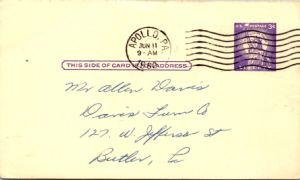 APOLLO, PA.
JUN 11
9-AM
U.S. POSTAGE 3¢
THIS SIDE OF CARD IS FOR ADDRESS
Mr Allen Davis
Davis Furn Co
127 W. Jefferson St
Butler, Pa